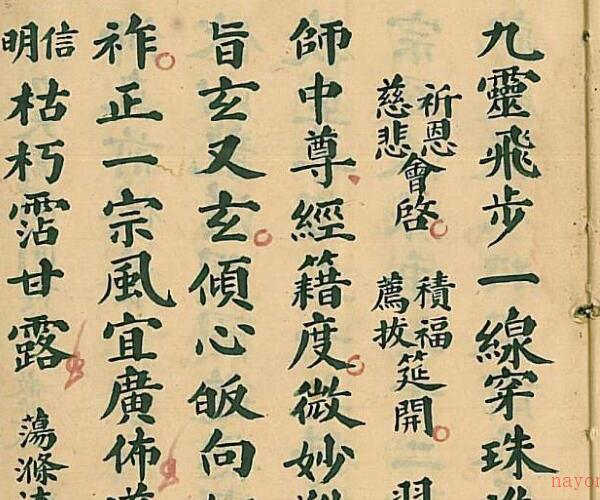 九靈飛步一線穿珠
祈恩
慈悲
會啓
積福
薦拔
筵開
師中尊經籍度微妙
旨玄又玄傾心皈向
祚正一宗風宜廣佈
信
明
枯朽霑甘露
蕩滌
nayon